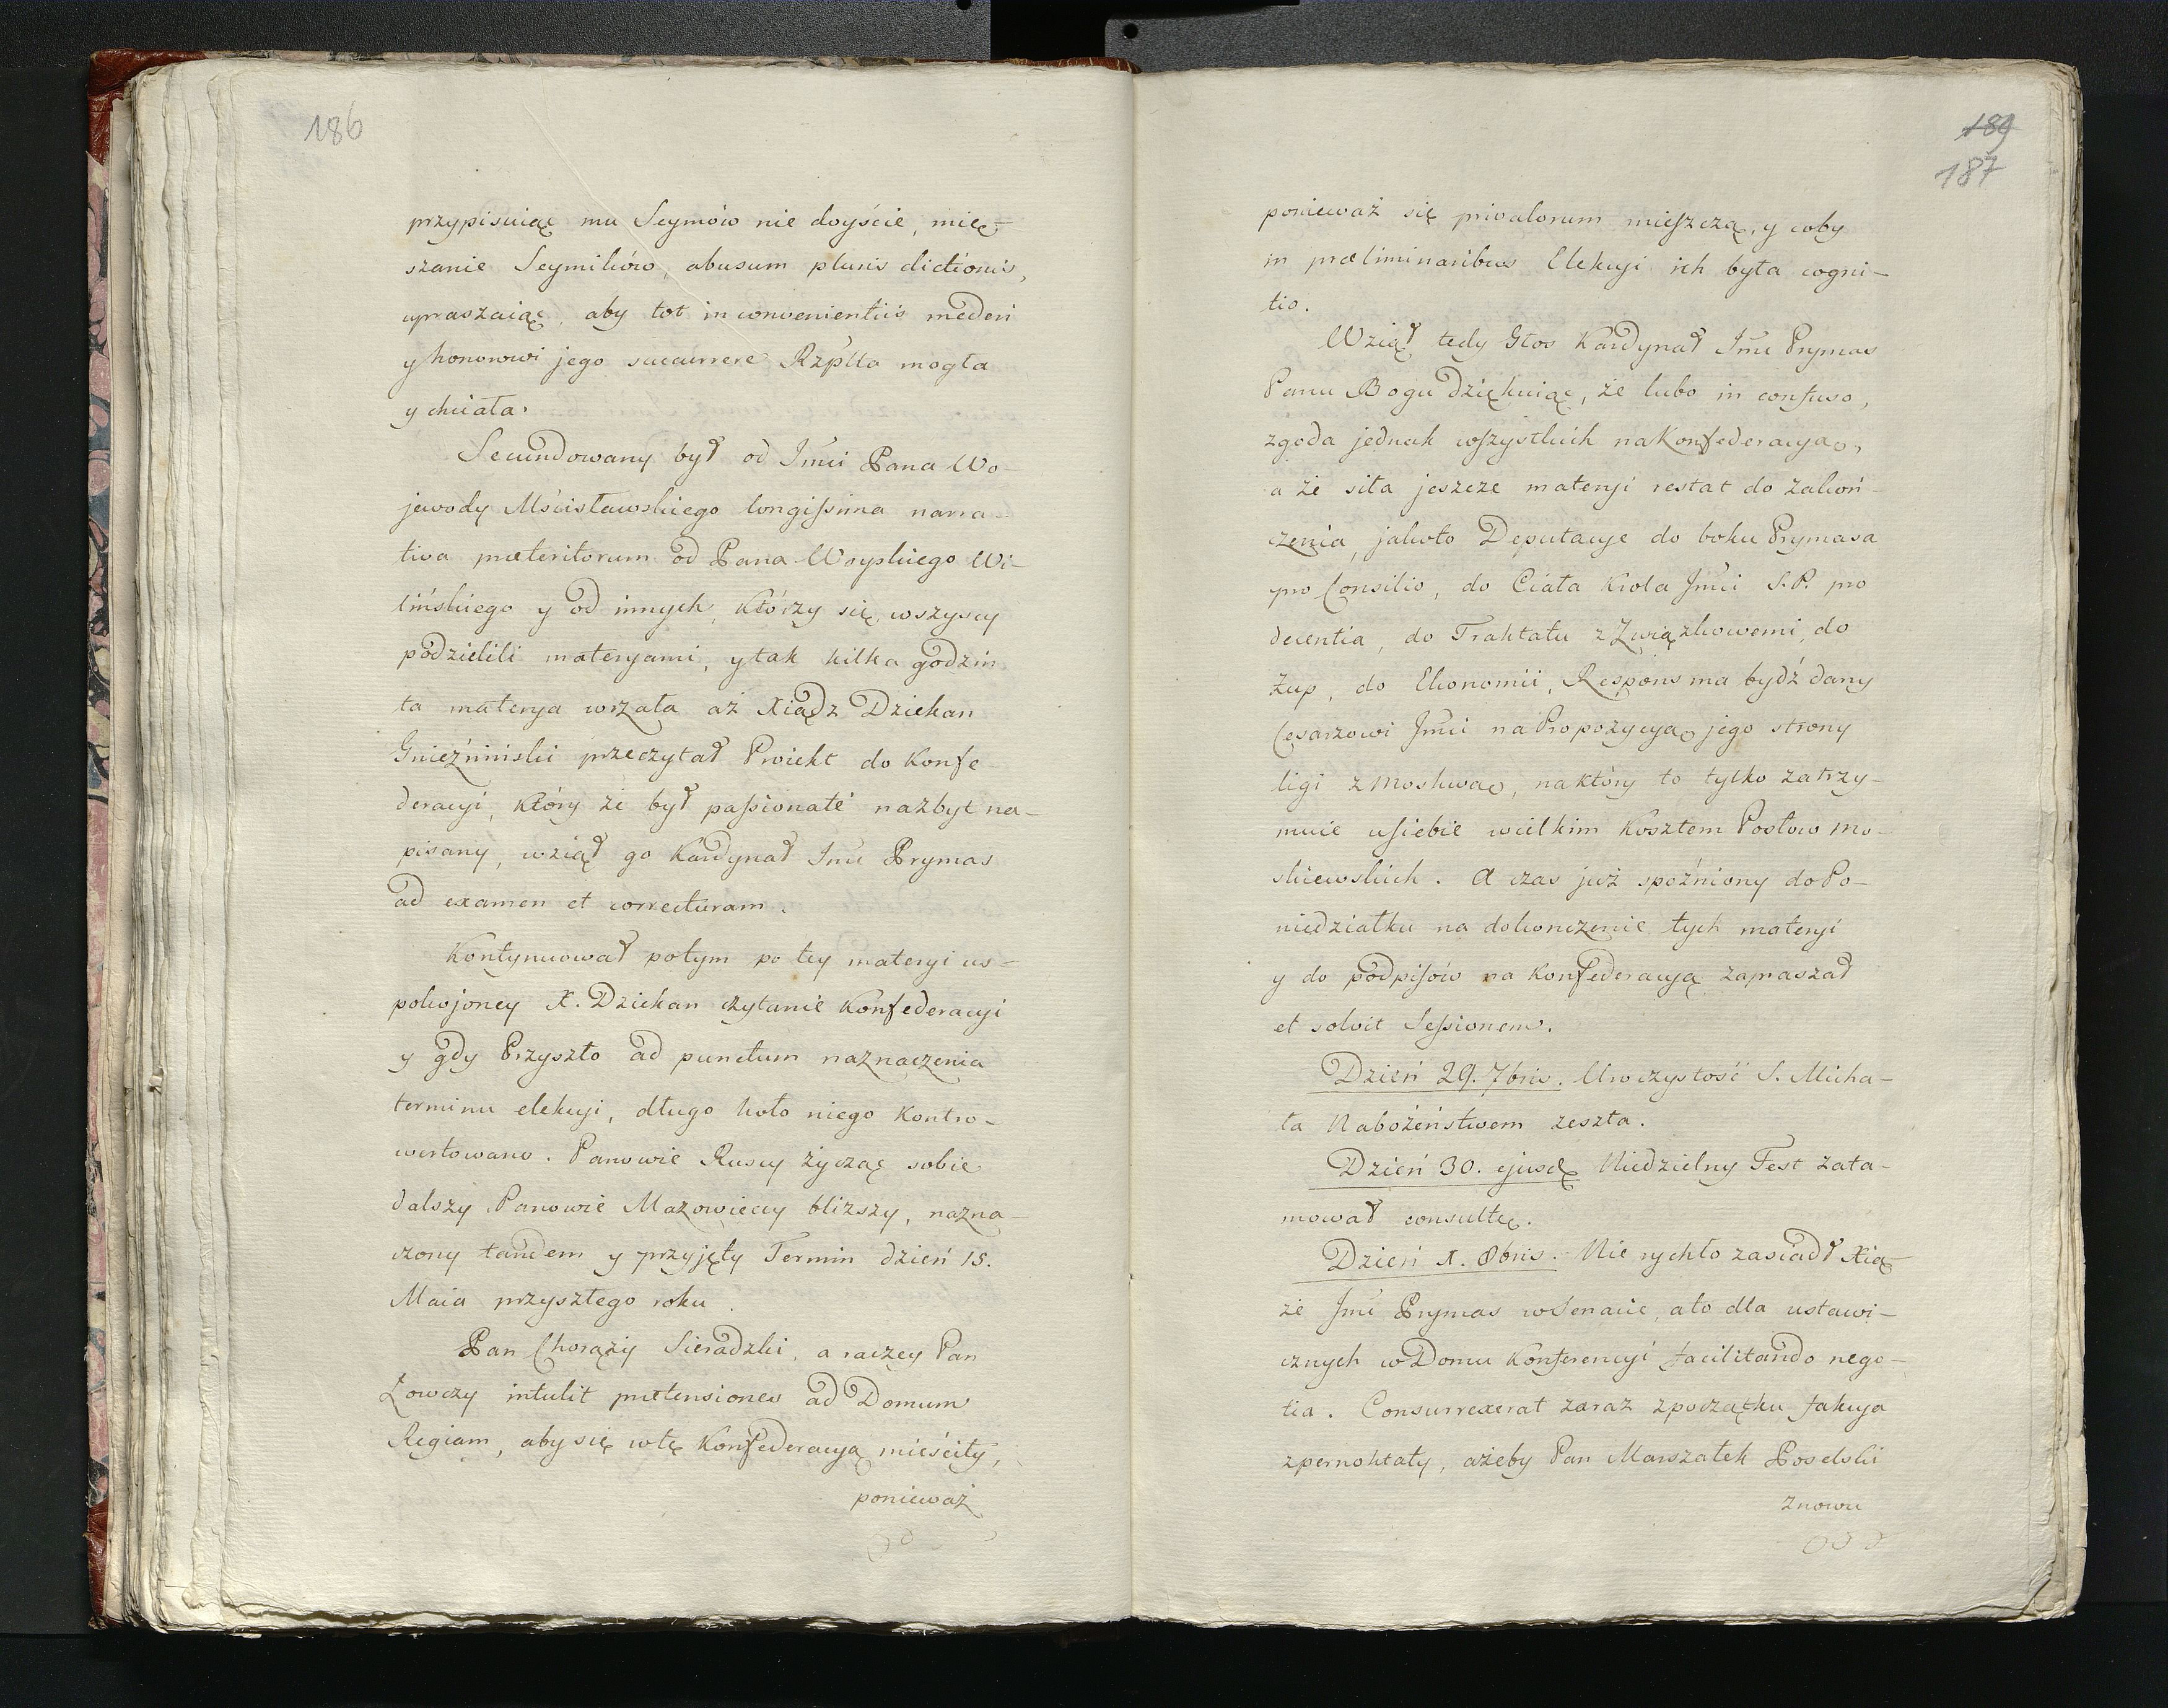 186
przypisuiąc mu Seymów nie doyście, mię-
szanie Seymików, abusum pluris dictionis,
upraszaiąc, aby tot in convenientiis mederi
y honorowi jego succurrere Rzplta mogła
y chciała.
Secundowany był od Jmci Pana Wo-
jewody Mścisławskiego longissima narra-
tiva præteritorum od Pana Woyskiego Wi-
lińskiego y od innych, którzy się wszyscy
podzielili materyami, y tak kilka godzin
ta materya wrzała aż Xiądz Dziekan
Gnieźniński przeczytał Proiekt do Konfe-
deracyi, który że był passionaté nazbyt na-
pisany, wziął go Kardynał Jmć Prymas
ad examen et correcturam.
Kontynuował potym po tey materyi us-
pokojoney X. Dziekan czytanie Konfederacyi
y gdy Przyszło ad punctum naznaczenia
terminu elekcyi, długo koło niego kontro-
wertowano. Panowie Ruscy życząc sobie
dalszy Panowie Mazowieccy bliższy, nazna-
czony tandem y przyjęty Termin dzień 15.
Maia przyszłego roku.
Pan Chorąży Sieradzki, a raczey Pan
Łowczy intulit prætensiones ad Domum
Regiam, aby się w tę Konfederacyą mieściły,
ponieważ
189
187
ponieważ się privatorum mieszczą, y coby
in præliminaribus Elekcyi ich była cogni-
tio.
Wziął tedy Głos Kardynał Jmć Prymas
Panu Bogu dziękuiąc, że lubo in confuso,
zgoda jednak wszystkich na Konfederacyą,
a że siła jeszcze materyi restat do zakoń-
czenia, jakoto Deputacye do boku Prymasa
pro Consilio, do Ciała Krola Jmci S. P. pro
decentia, do Traktatu z Związkowemi, do
Żup, do Ekonomii, Respons ma bydź dany
Cesarzowi Jmci na Propozycyą jego strony
ligi z Moskwą, na który to tylko zatrzy-
muie u siebie wielkim kosztem Posłow Mo-
skiewskich. A czas już spoźniony do Po-
niedziałku na dokonczenie tych materyi
y do podpisów na Konfederacyą zapraszał
et solvit Sessionem.
Dzień 29. 7bris. Uroczystość S. Micha-
ła Nabożeństwem zeszła.
Dzień 30. ejusd. Niedzielny Fest zata-
mował consultę.
Dzień 1. 8bris. Nie rychło zasiadł Xią
że Jmć Prymas w Senacie, a to dla ustawi-
cznych w Domu Konferencyi facilitando nego-
tia. Consurrexerat zaraz z początku fakcya
z pernoktaty, ażeby Pan Marszałek Poselski
znowu